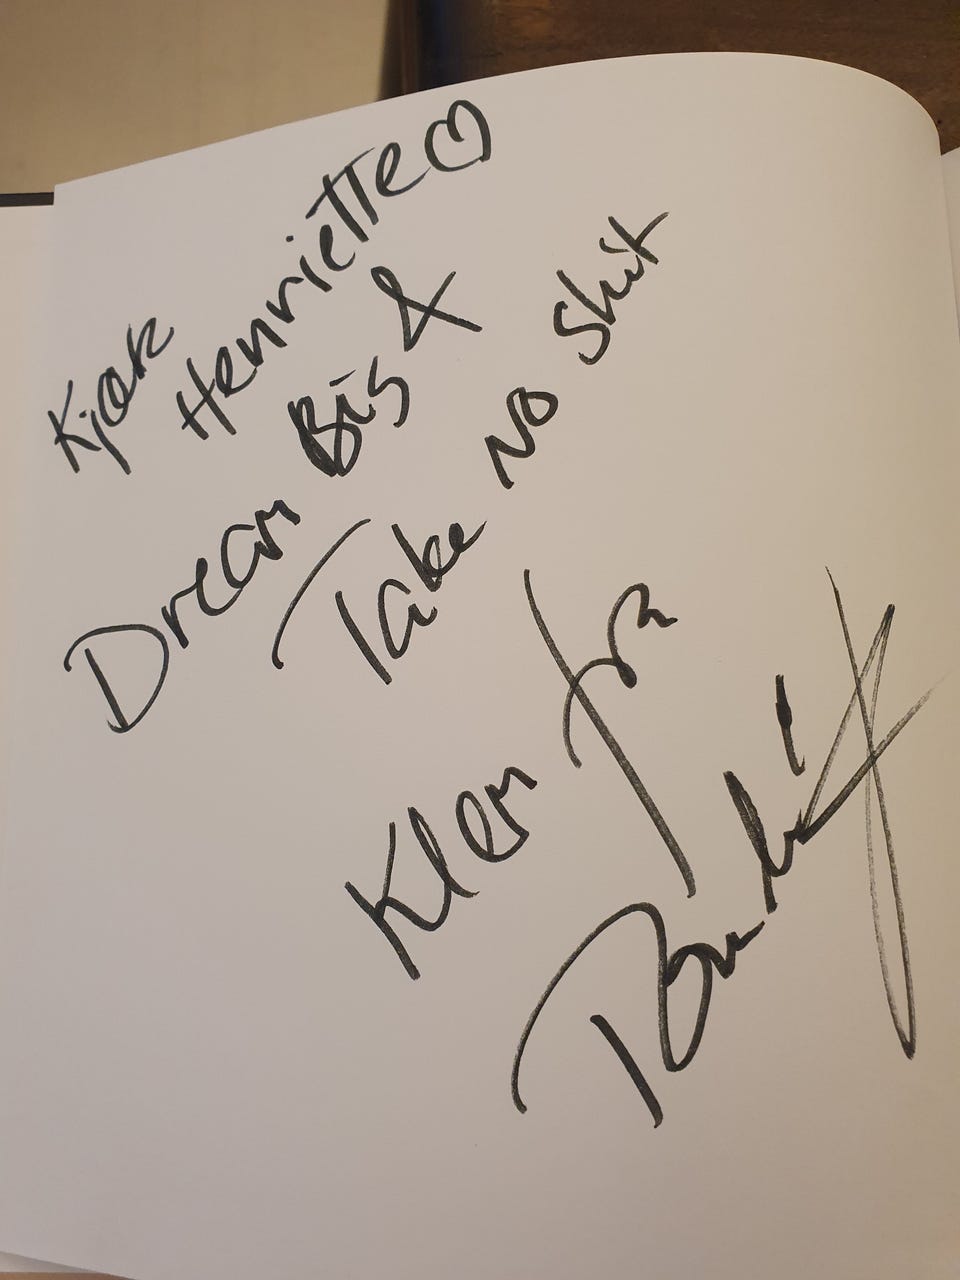 Kjære
Henriette ♡
Dream Big &
Take No Shit
Klem fra